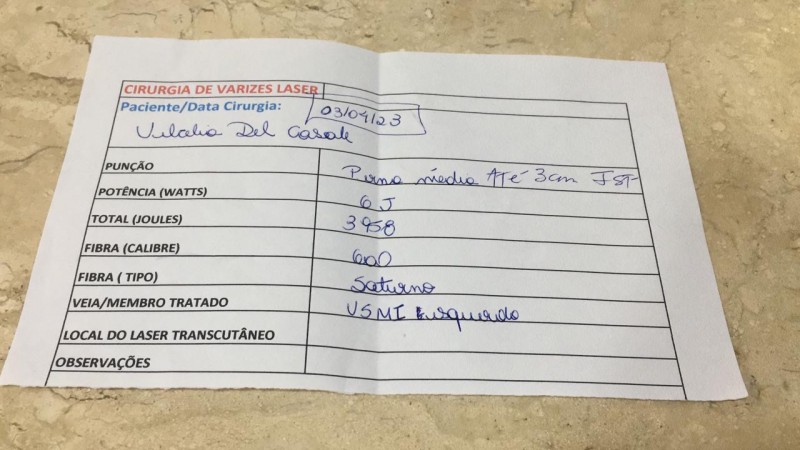 CIRURGIA DE VARIZES LASER
Paciente/Data Cirurgia: 03/04/23
Del Casale
PUNÇÃO Perna média Até 3cm JSF
POTÊNCIA (WATTS) 6 J
TOTAL (JOULES) 3958
FIBRA (CALIBRE) 600
FIBRA ( TIPO) Saturno
VEIA/MEMBRO TRATADO VSMI Esquerdo
LOCAL DO LASER TRANSCUTÂNEO
OBSERVAÇÕES